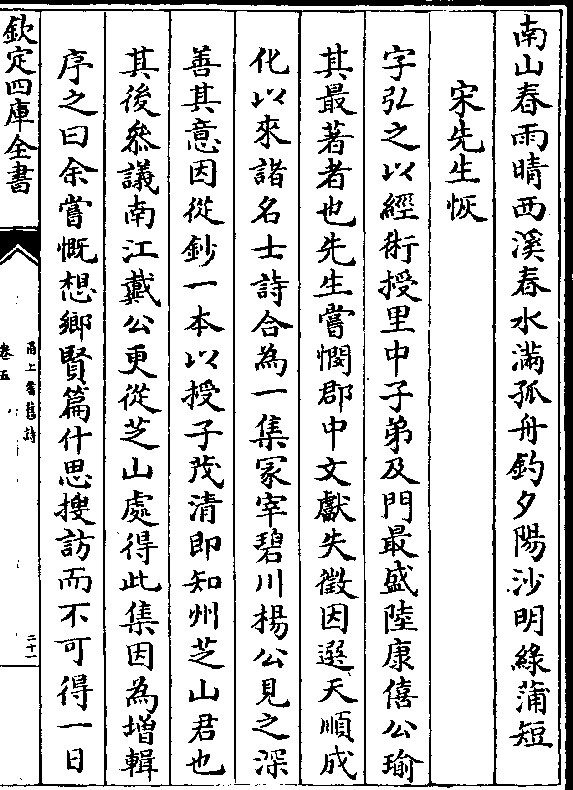 南山春雨晴西溪春水滿孤舟釣夕陽沙明綠蒲短
宋先生恢
字弘之以經術授里中子弟及門最盛陸康僖公瑜
其最著者也先生嘗憫郡中文獻失徵因選天順成
化以來諸名士詩合為一集冢宰碧川楊公見之深
善其意因從鈔一本以授子茂清即知州芝山君也
其後叅議南江戴公更從芝山處得此集因為增輯
序之曰余嘗慨想鄉賢篇什思搜訪而不可得一日
欽定四庫全書
甬上耆舊詩
卷五
二十一